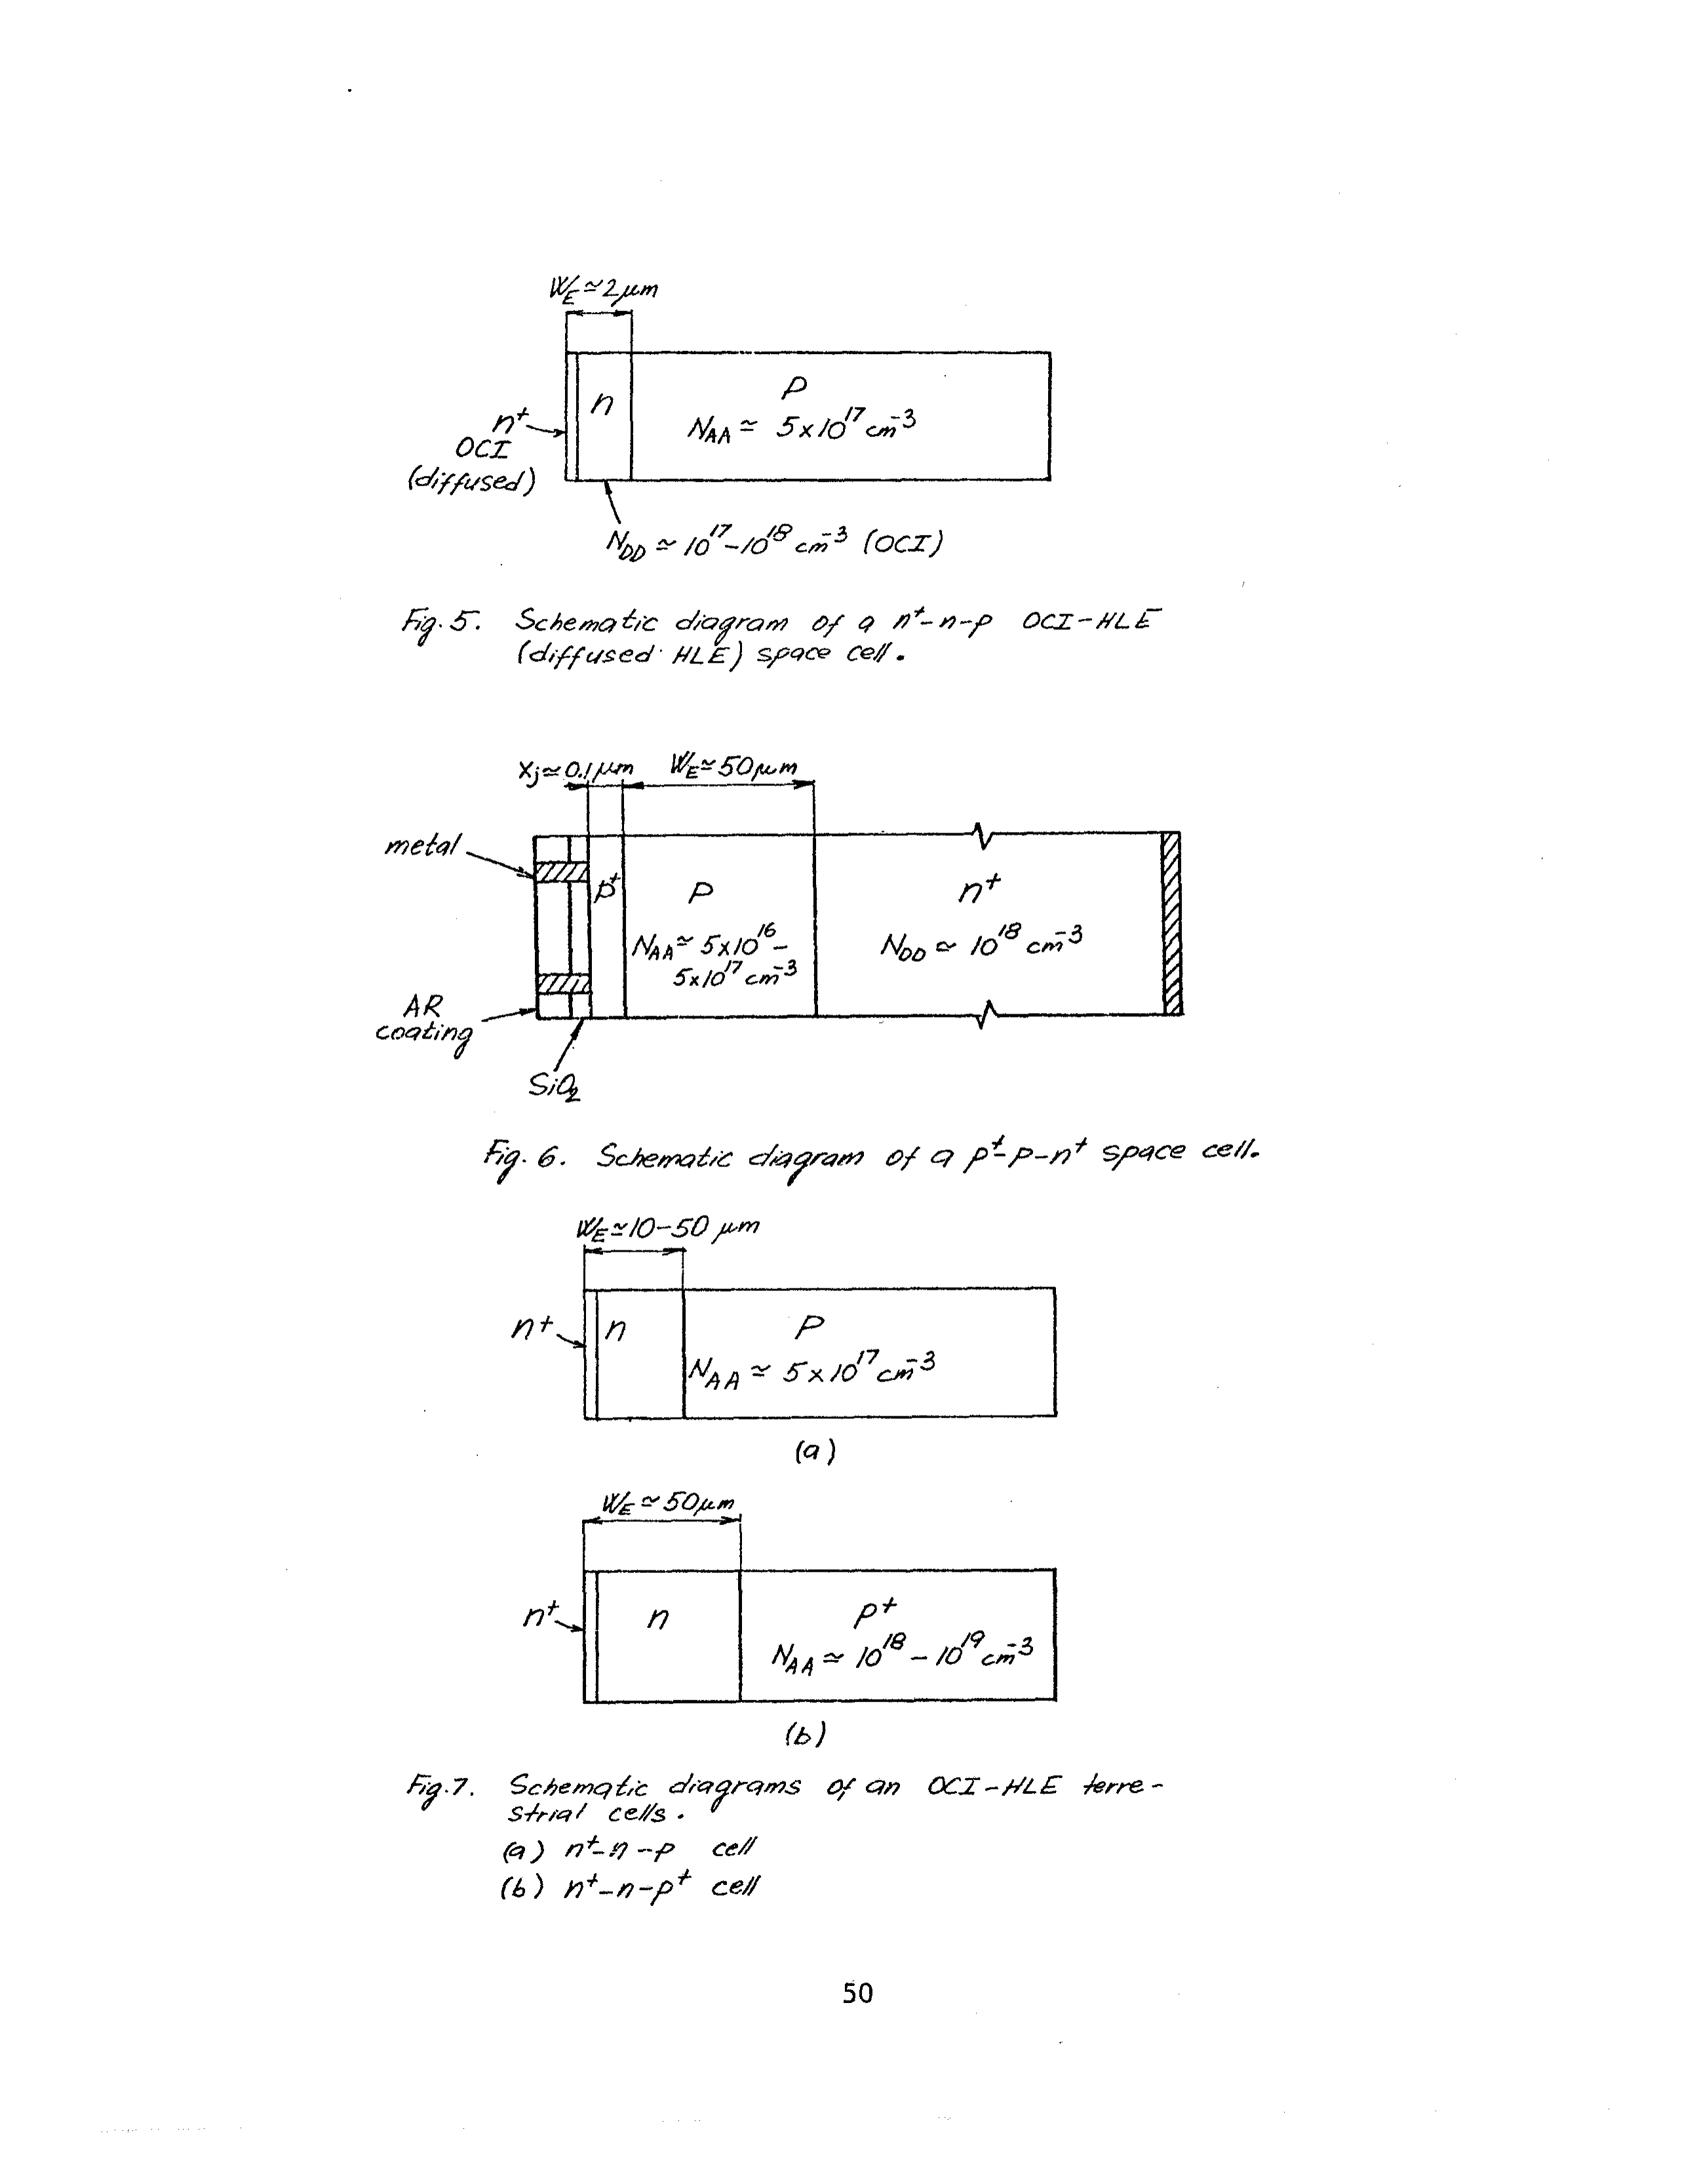 W_E ≃ 2 μm
n
P
n⁺
N_AA ≃ 5x10¹⁷ cm⁻³
OCI
(diffused)
N_DD ≃ 10¹⁷-10¹⁸ cm⁻³ (OCI)
Fig. 5. Schematic diagram of a n⁺-n-p OCI-HLE
(diffused HLE) space cell.
x_j ≃ 0.1 μm W_E ≃ 50 μm
metal
p⁺
P
n⁺
N_AA ≃ 5x10¹⁶-
5x10¹⁷ cm⁻³
N_DD ≃ 10¹⁸ cm⁻³
AR
coating
SiO₂
Fig. 6. Schematic diagram of a p⁺-p-n⁺ space cell.
W_E ≃ 10-50 μm
n⁺
n
P
N_AA ≃ 5x10¹⁷ cm⁻³
(a)
W_E ≃ 50 μm
n⁺
n
p⁺
N_AA ≃ 10¹⁸ - 10¹⁹ cm⁻³
(b)
Fig. 7. Schematic diagrams of an OCI-HLE terre-
strial cells.
(a) n⁺-n-p cell
(b) n⁺-n-p⁺ cell
50